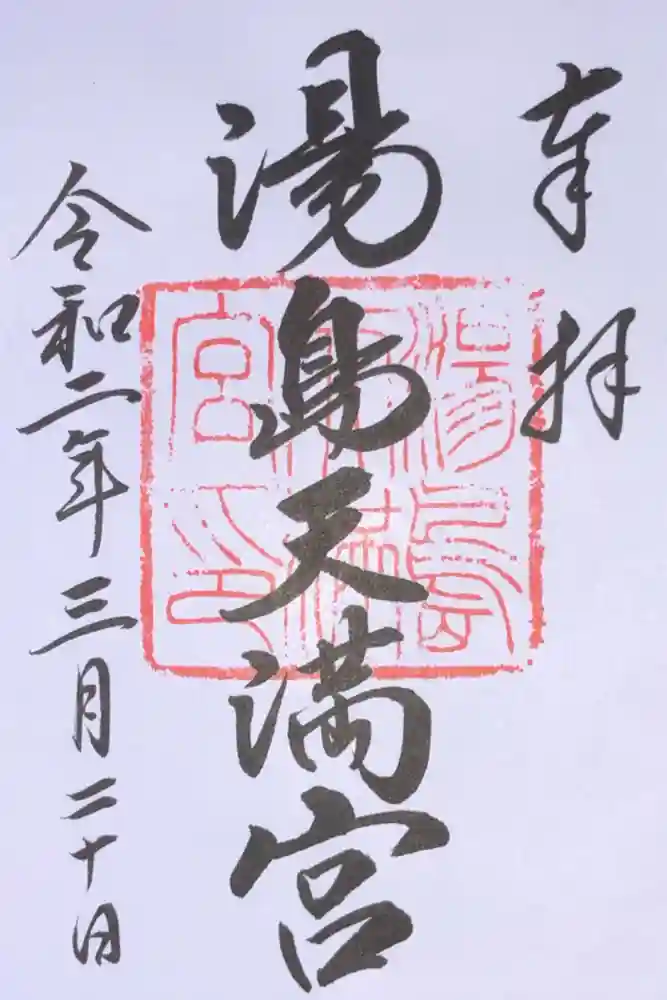 奉拝
湯島天満宮
湯島天満宮印
令和二年三月二十日